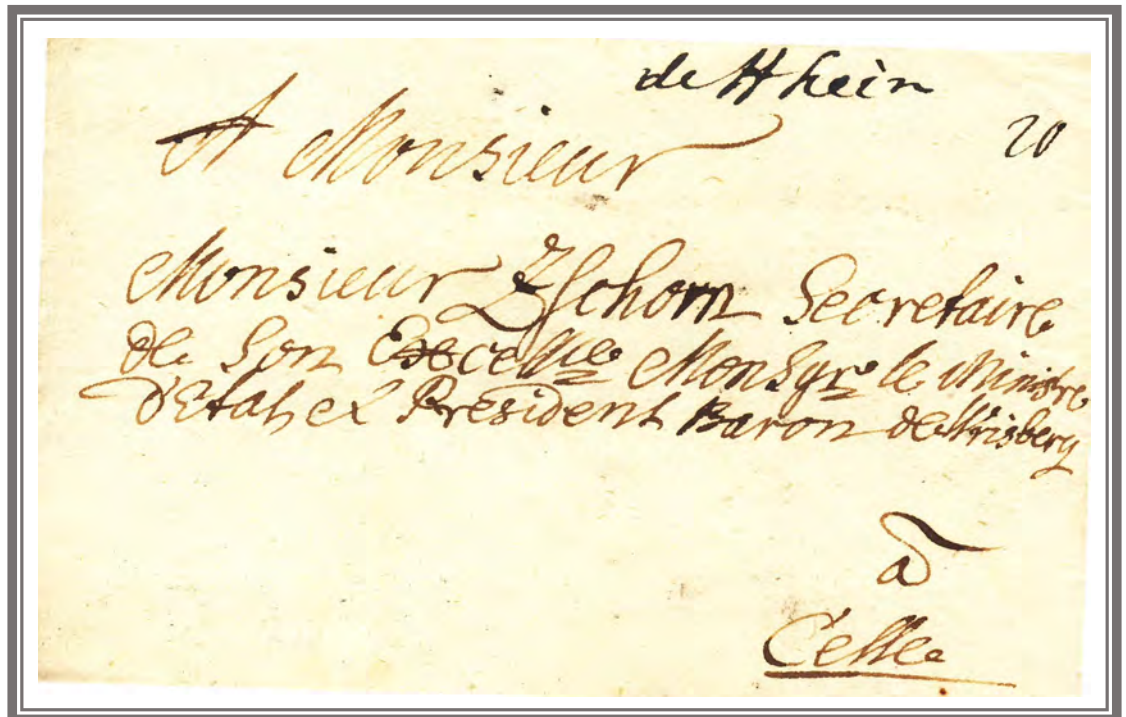 de Rhein
20
A Monsieur
Monsieur Zschorn Secretaire
de Son Excellce Monsgr. le Ministre
d'Etat et President Baron de Wrisberg
a
Celle